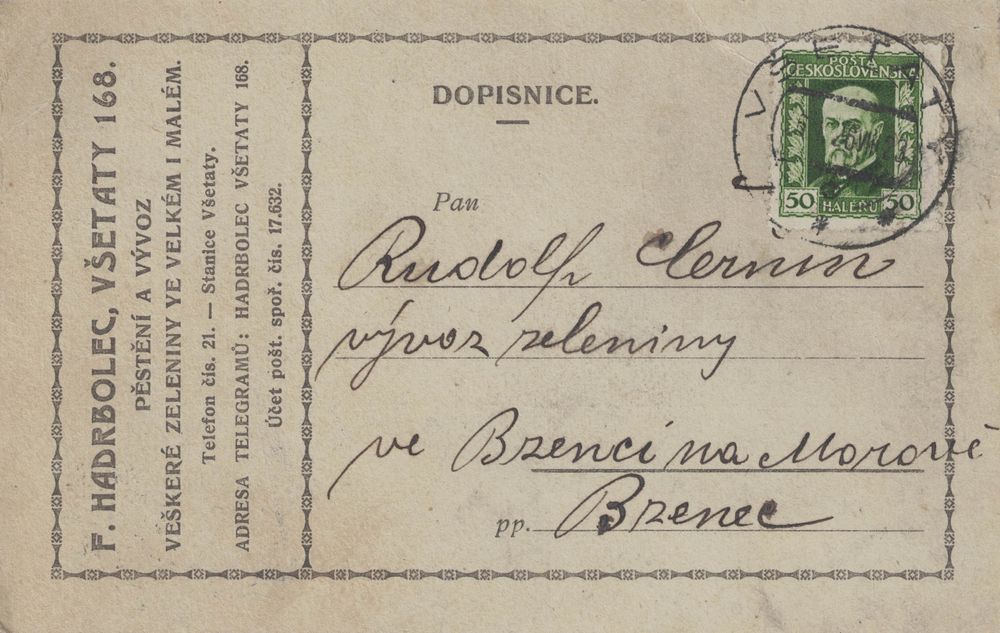 F. HADRBOLEC, VŠETATY 168.
PĚSTĚNÍ A VÝVOZ
VEŠKERÉ ZELENINY VE VELKÉM I MALÉM.
Telefon čís. 21. — Stanice Všetaty.
ADRESA TELEGRAMŮ: HADRBOLEC VŠETATY 168.
Účet pošt. spoř. čís. 17.632.
DOPISNICE.
POŠTA
ČESKOSLOVENSKÁ
50 HALÉŘŮ 50
VŠETATY
Pan
Rudolf Černín
vývoz zeleniny
ve Bzenci na Moravě
pp. Bzenec